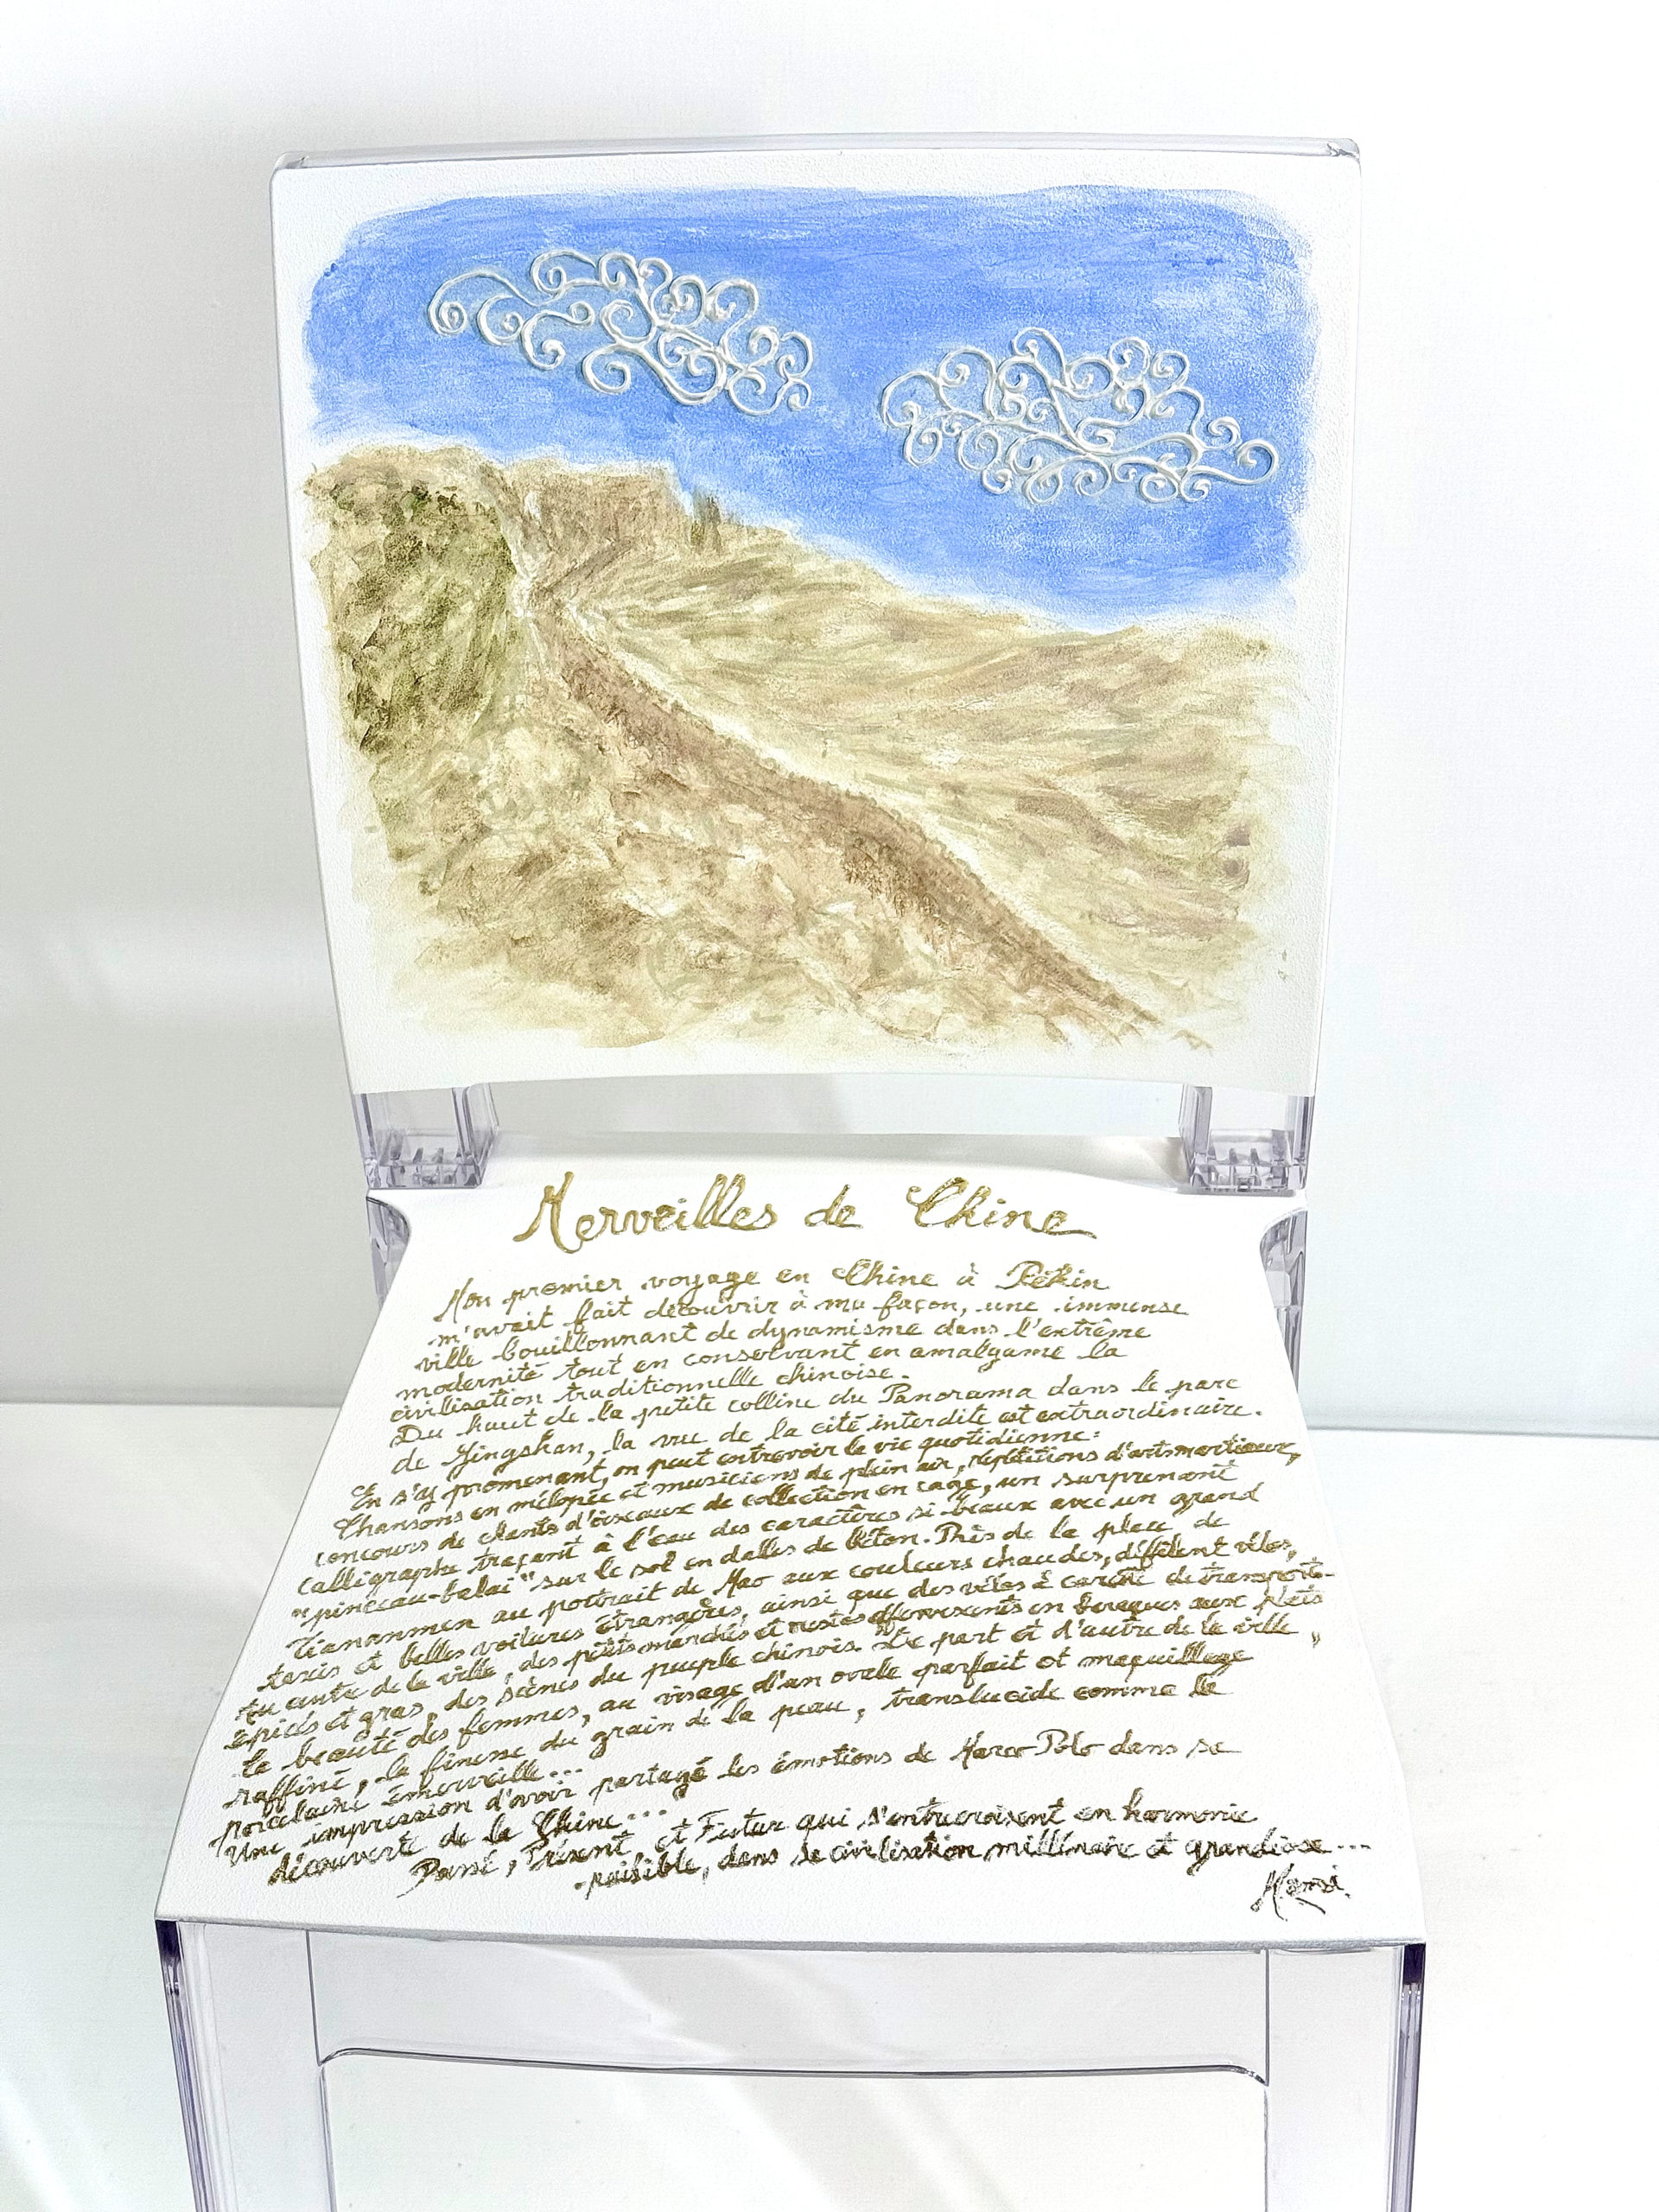 Merveilles de Chine
Mon premier voyage en Chine à Pékin
m'avait fait découvrir à ma façon, une immense
ville bouillonnant de dynamisme dans l'extrême
modernité tout en conservant en amalgame la
civilisation traditionnelle chinoise.
Du haut de la petite colline du Panorama dans le parc
de Jingshan, la vue de la cité interdite est extraordinaire.
En s'y promenant, on peut entrevoir la vie quotidienne:
Chansons en mélopée et musiciens de plein air, répétitions d'arts martiaux,
concours de chants d'oiseaux de collection en cage, un surprenant
calligraphe traçant à l'eau des caractères si beaux avec un grand
"pinceau-balai" sur le sol en dalles de béton. Près de la place de
Tiananmen au portrait de Mao aux couleurs chaudes, défilent vélos,
taxis et belles voitures étrangères, ainsi que des vélos à de transports.
Au centre de la ville, des petits marchés et restos effervescents en aux plats
épicés et gras, des scènes du peuple chinois. De part et d'autre de la ville,
la beauté des femmes, au visage d'un ovale parfait et maquillage
raffiné, la finesse du grain de la peau, translucide comme la
porcelaine émerveille...
Une impression d'avoir partagé les émotions de Marco Polo dans sa
découverte de la Chine...
Passé, Présent et Futur qui s'entrecroisent en harmonie
paisible, dans sa civilisation millénaire et grandiose...